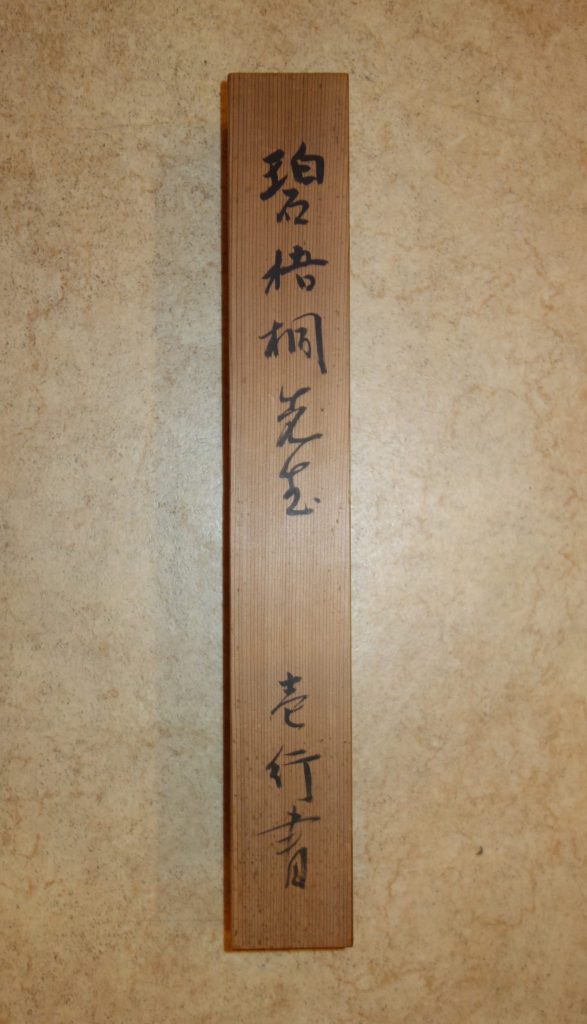 碧梧桐先生 壱行書